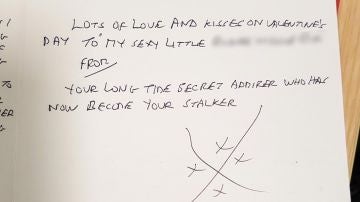 LOTS OF LOVE AND KISSES ON VALENTINE'S
DAY TO MY SEXY LITTLE
FROM
YOUR LONG TIME SECRET ADMIRER WHO HAS
NOW BECOME YOUR STALKER
X X X X